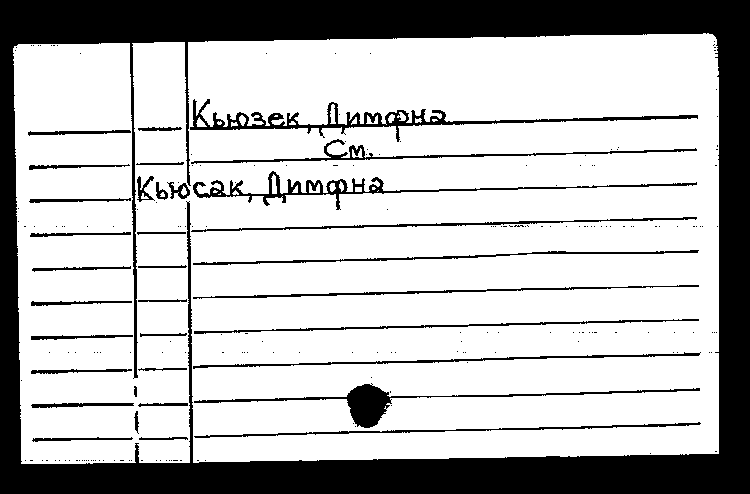 Кьюзек, Димфна
См.
Кьюсак, Димфна